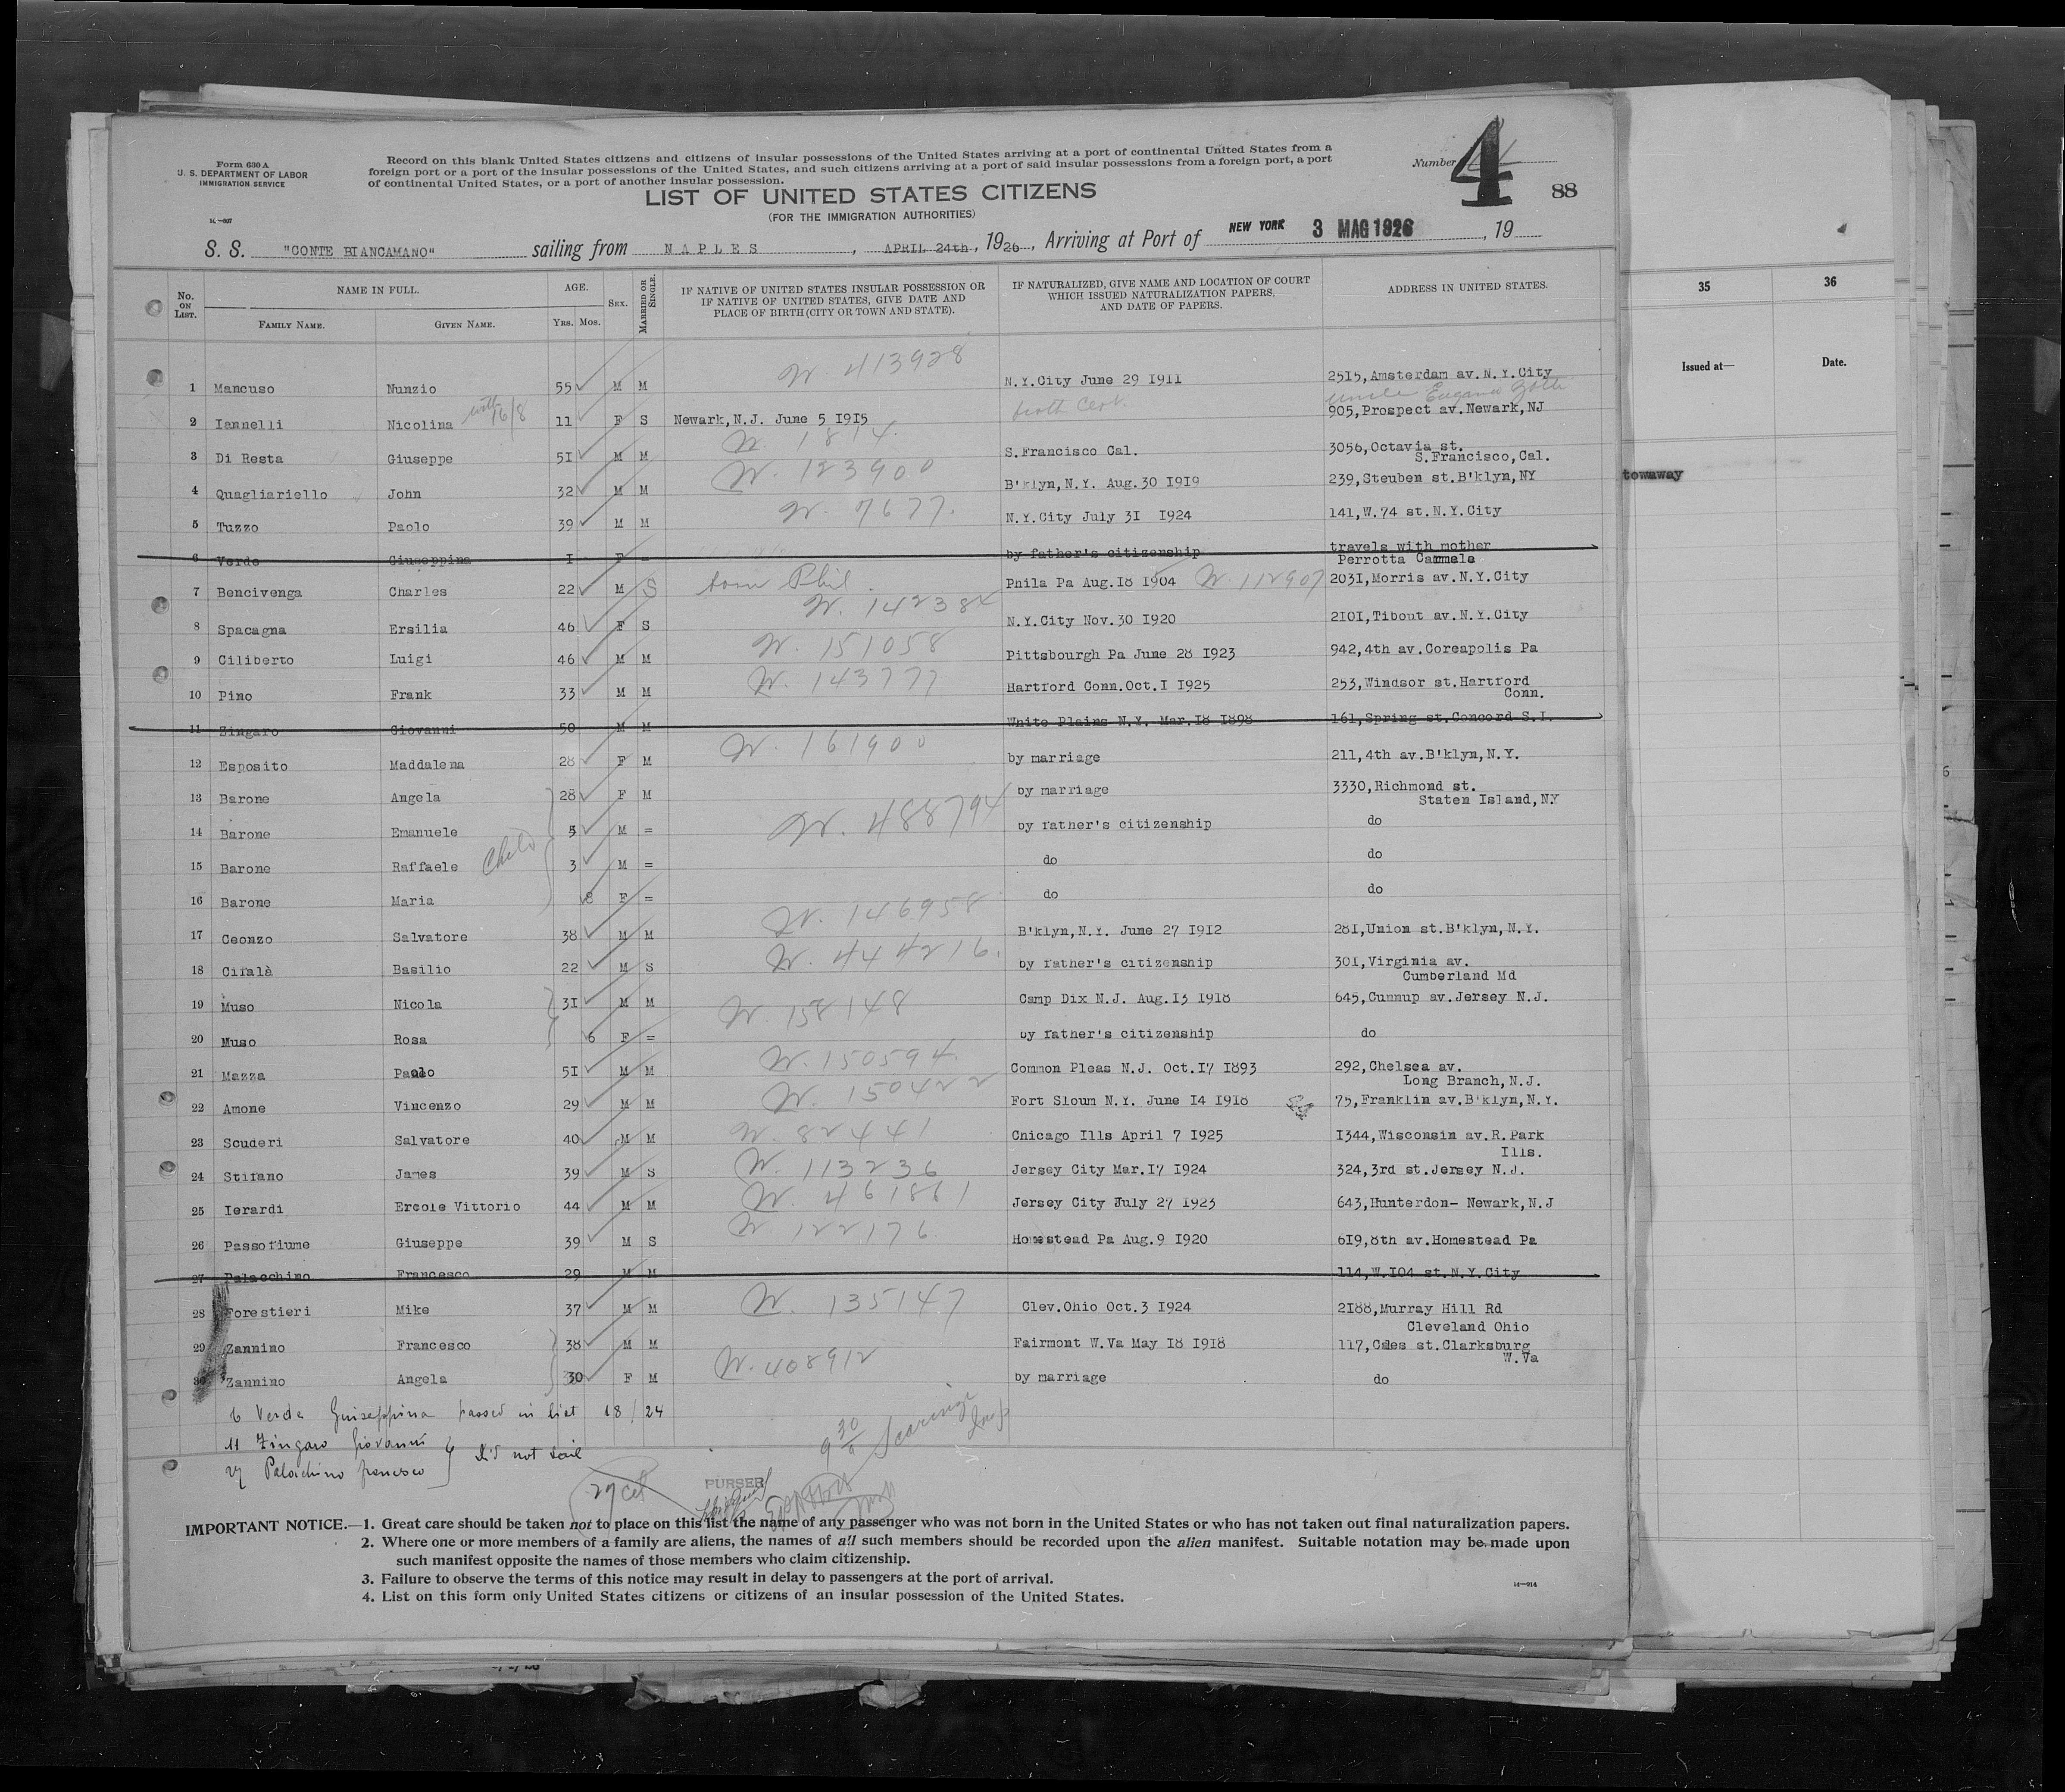 Form 630 A
U. S. DEPARTMENT OF LABOR
IMMIGRATION SERVICE
14—007
Record on this blank United States citizens and citizens of insular possessions of the United States arriving at a port of continental United States from a
foreign port or a port of the insular possessions of the United States, and such citizens arriving at a port of said insular possessions from a foreign port, a port
of continental United States, or a port of another insular possession.
Number 4
88
LIST OF UNITED STATES CITIZENS
(FOR THE IMMIGRATION AUTHORITIES)
S. S. "CONTE BIANCAMANO" sailing from NAPLES, APRIL 24th, 1926, Arriving at Port of NEW YORK 3 MAG 1926, 19
No. ON LIST. NAME IN FULL. FAMILY NAME. GIVEN NAME. AGE. YRS. MOS. SEX. MARRIED OR SINGLE. IF NATIVE OF UNITED STATES INSULAR POSSESSION OR IF NATIVE OF UNITED STATES, GIVE DATE AND PLACE OF BIRTH (CITY OR TOWN AND STATE). IF NATURALIZED, GIVE NAME AND LOCATION OF COURT WHICH ISSUED NATURALIZATION PAPERS, AND DATE OF PAPERS. ADDRESS IN UNITED STATES.
35 36
Issued at— Date.
towaway
1 Mancuso Nunzio 55 M M W. 413928 N.Y.City June 29 1911 2515, Amsterdam av. N.Y.City
uncle Eugene
2 Iannelli Nicolina with 16/8 11 F S Newark, N.J. June 5 1915 birth Cert. 905, Prospect av. Newark, NJ
3 Di Resta Giuseppe 51 M M W. 1814. S.Francisco Cal. 3056, Octavia st.
S.Francisco, Cal.
4 Quagliariello John 32 M M W. 123900 B'klyn, N.Y. Aug. 30 1919 239, Steuben st. B'klyn, NY
5 Tuzzo Paolo 39 M M W. 7677. N.Y.City July 31 1924 141, W. 74 st. N.Y.City
6 Verde Giuseppina 1 F = by father's citizenship travels with mother
Perrotta Carmela
7 Bencivenga Charles 22 M S born Phil. Phila Pa Aug. 18 1904 W. 112907 2031, Morris av. N.Y.City
8 Spacagna Ersilia 46 F S W. 142384 N.Y.City Nov. 30 1920 2101, Tibout av. N.Y.City
9 Ciliberto Luigi 46 M M W. 151058 Pittsbourgh Pa June 28 1923 942, 4th av. Coreapolis Pa
10 Pino Frank 33 M M W. 143777 Hartford Conn. Oct. 1 1925 253, Windsor st. Hartford
Conn.
11 Zingaro Giovanni 50 M M White Plains N.Y. Mar. 18 1898 161, Spring st. Concord S.I.
12 Esposito Maddalena 28 F M W. 161900 by marriage 211, 4th av. B'klyn, N.Y.
13 Barone Angela 28 F M by marriage 3330, Richmond st.
Staten Island, NY
14 Barone Emanuele 5 M = W. 488794 by father's citizenship do
15 Barone Raffaele Child 3 M = do do
16 Barone Maria 8 F = do do
17 Ceonzo Salvatore 38 M M W. 146958 B'klyn, N.Y. June 27 1912 281, Union st. B'klyn, N.Y.
18 Cifalà Basilio 22 M S W. 444216. by father's citizenship 301, Virginia av.
Cumberland Md
19 Muso Nicola 31 M M W. 158148 Camp Dix N.J. Aug. 13 1918 645, Cunnup av. Jersey N.J.
20 Muso Rosa 6 F = by father's citizenship do
21 Mazza Paolo 51 M M W. 150594. Common Pleas N.J. Oct. 17 1893 292, Chelsea av.
Long Branch, N.J.
22 Amone Vincenzo 29 M M W. 150422 Fort Sloum N.Y. June 14 1918 75, Franklin av. B'klyn, N.Y.
23 Scuderi Salvatore 40 M M W. 82441 Chicago Ills April 7 1925 1344, Wisconsin av. R. Park
Ills.
24 Stifano James 39 M S W. 113236 Jersey City Mar. 17 1924 324, 3rd st. Jersey N.J.
25 Ierardi Ercole Vittorio 44 M M W. 461861 Jersey City July 27 1923 643, Hunterdon- Newark, N.J
26 Passofiume Giuseppe 39 M S W. 122176 Homestead Pa Aug. 9 1920 619, 8th av. Homestead Pa
27 Palacchino Francesco 29 M M 114, W. 104 st. N.Y.City
28 Forestieri Mike 37 M M W. 135147 Clev. Ohio Oct. 3 1924 2188, Murray Hill Rd
Cleveland Ohio
29 Zannino Francesco 38 M M Fairmont W.Va May 18 1918 117, Cdes st. Clarksburg
W.Va
30 Zannino Angela 30 F M W. 408912 by marriage do
6 Verde Giuseppina passed in list 18/24
11 Zingaro Giovanni
27 Palacchino francesco } did not sail
PURSER
IMPORTANT NOTICE.—1. Great care should be taken not to place on this list the name of any passenger who was not born in the United States or who has not taken out final naturalization papers.
2. Where one or more members of a family are aliens, the names of all such members should be recorded upon the alien manifest. Suitable notation may be made upon
such manifest opposite the names of those members who claim citizenship.
3. Failure to observe the terms of this notice may result in delay to passengers at the port of arrival.
4. List on this form only United States citizens or citizens of an insular possession of the United States.
14—914